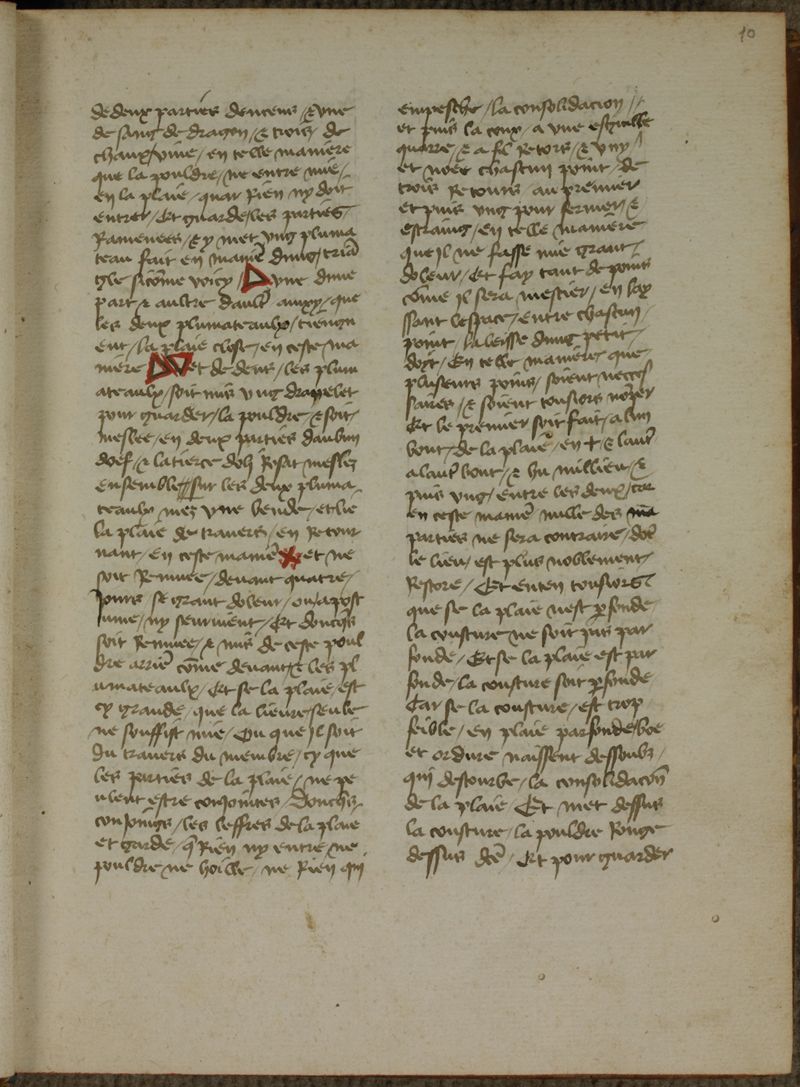 10
de deux parties dencens / & une
de sang de dragon / & trois / de
chaux / vive / en telle maniere
que la pouldre / ne entre mie /
en la plaie / quar Rien ny doit
entrer / Et guarde / les parties
Ramenees / & y met ung pluma
teau fait en manie dung / tria
gle / sicome voicy / D une dune
part / & aultre daultr auxy / que
les deux plumateaulx / tiengn
ent / la plaie close / en ceste / ma
niere et de dens / les plum
ateaulx / soit mis ung drapelet
pour guarder / la pouldre / & soit /
meslee / en deux parties daubun
doef / & la tierce doly Rosat meslez
ensemble // sur les deux pluma /
teaulx mez une bende / et lie
la plaie de travers / en Retour
nant / en ceste manie X et ne
soit Remuee / devant quatre /
jours se grant doleur / ou apost
ume / ny seurvient / Et doncqs
soit Remuee / & mis de ceste poul
dre arrie come devant / & les pl
umateaulx / Et se la plaie / est
cy grande / que la lieure / seule
ne souffist mie / Ou que il soit
Du travers du membre / cy que
les parties de la plaie / ne pe
ulent estre conjointes / Doncqs
conjoings / les leffres de la plaie
et garde / q Rien ny entre / ne
pouldre ne hoille / ne Rien qui
empesche / la consolidacion //
et puis la coux / a une esguille
quarre / & a fil Retors / & uny /
et noee chascun point / de
trois Retours / au premier
et puis ung pour fermer / &
estraing / en telle maniere
que il ne fasse mie grant /
doleur / Et fay tant de poins
come il sera mestier / en lay
ssant lespace / entre chascun /
point / la leisse dung petit /
doyt / En telle maniere / que
plusieurs poins / soient necces
saires / & soient tousiors noper
Et le premier soit fait / a lun
bout / de la plaie / en + & laut
a laut bout / & hu millieu / &
puis ung / entre les deux / car
en ceste manie nulle des ma
parties ne sera contraire / dot
le lieu / est plus noblement /
Restore / Et enten tousiors
que se la plaie nest pfonde
la cousture ne soit pas par
fonde / Et se la plaie est par
fonde / la cousture soit pfonde
Car se la cousture / est trop
feible / en plaie parfonde / boe
et ordure naissent dessoubs /
qui destourbe / la consolidacon
de la plaie / Et met dessus
la cousture / la pouldre Rouge
dessus dce / Et pour guarder